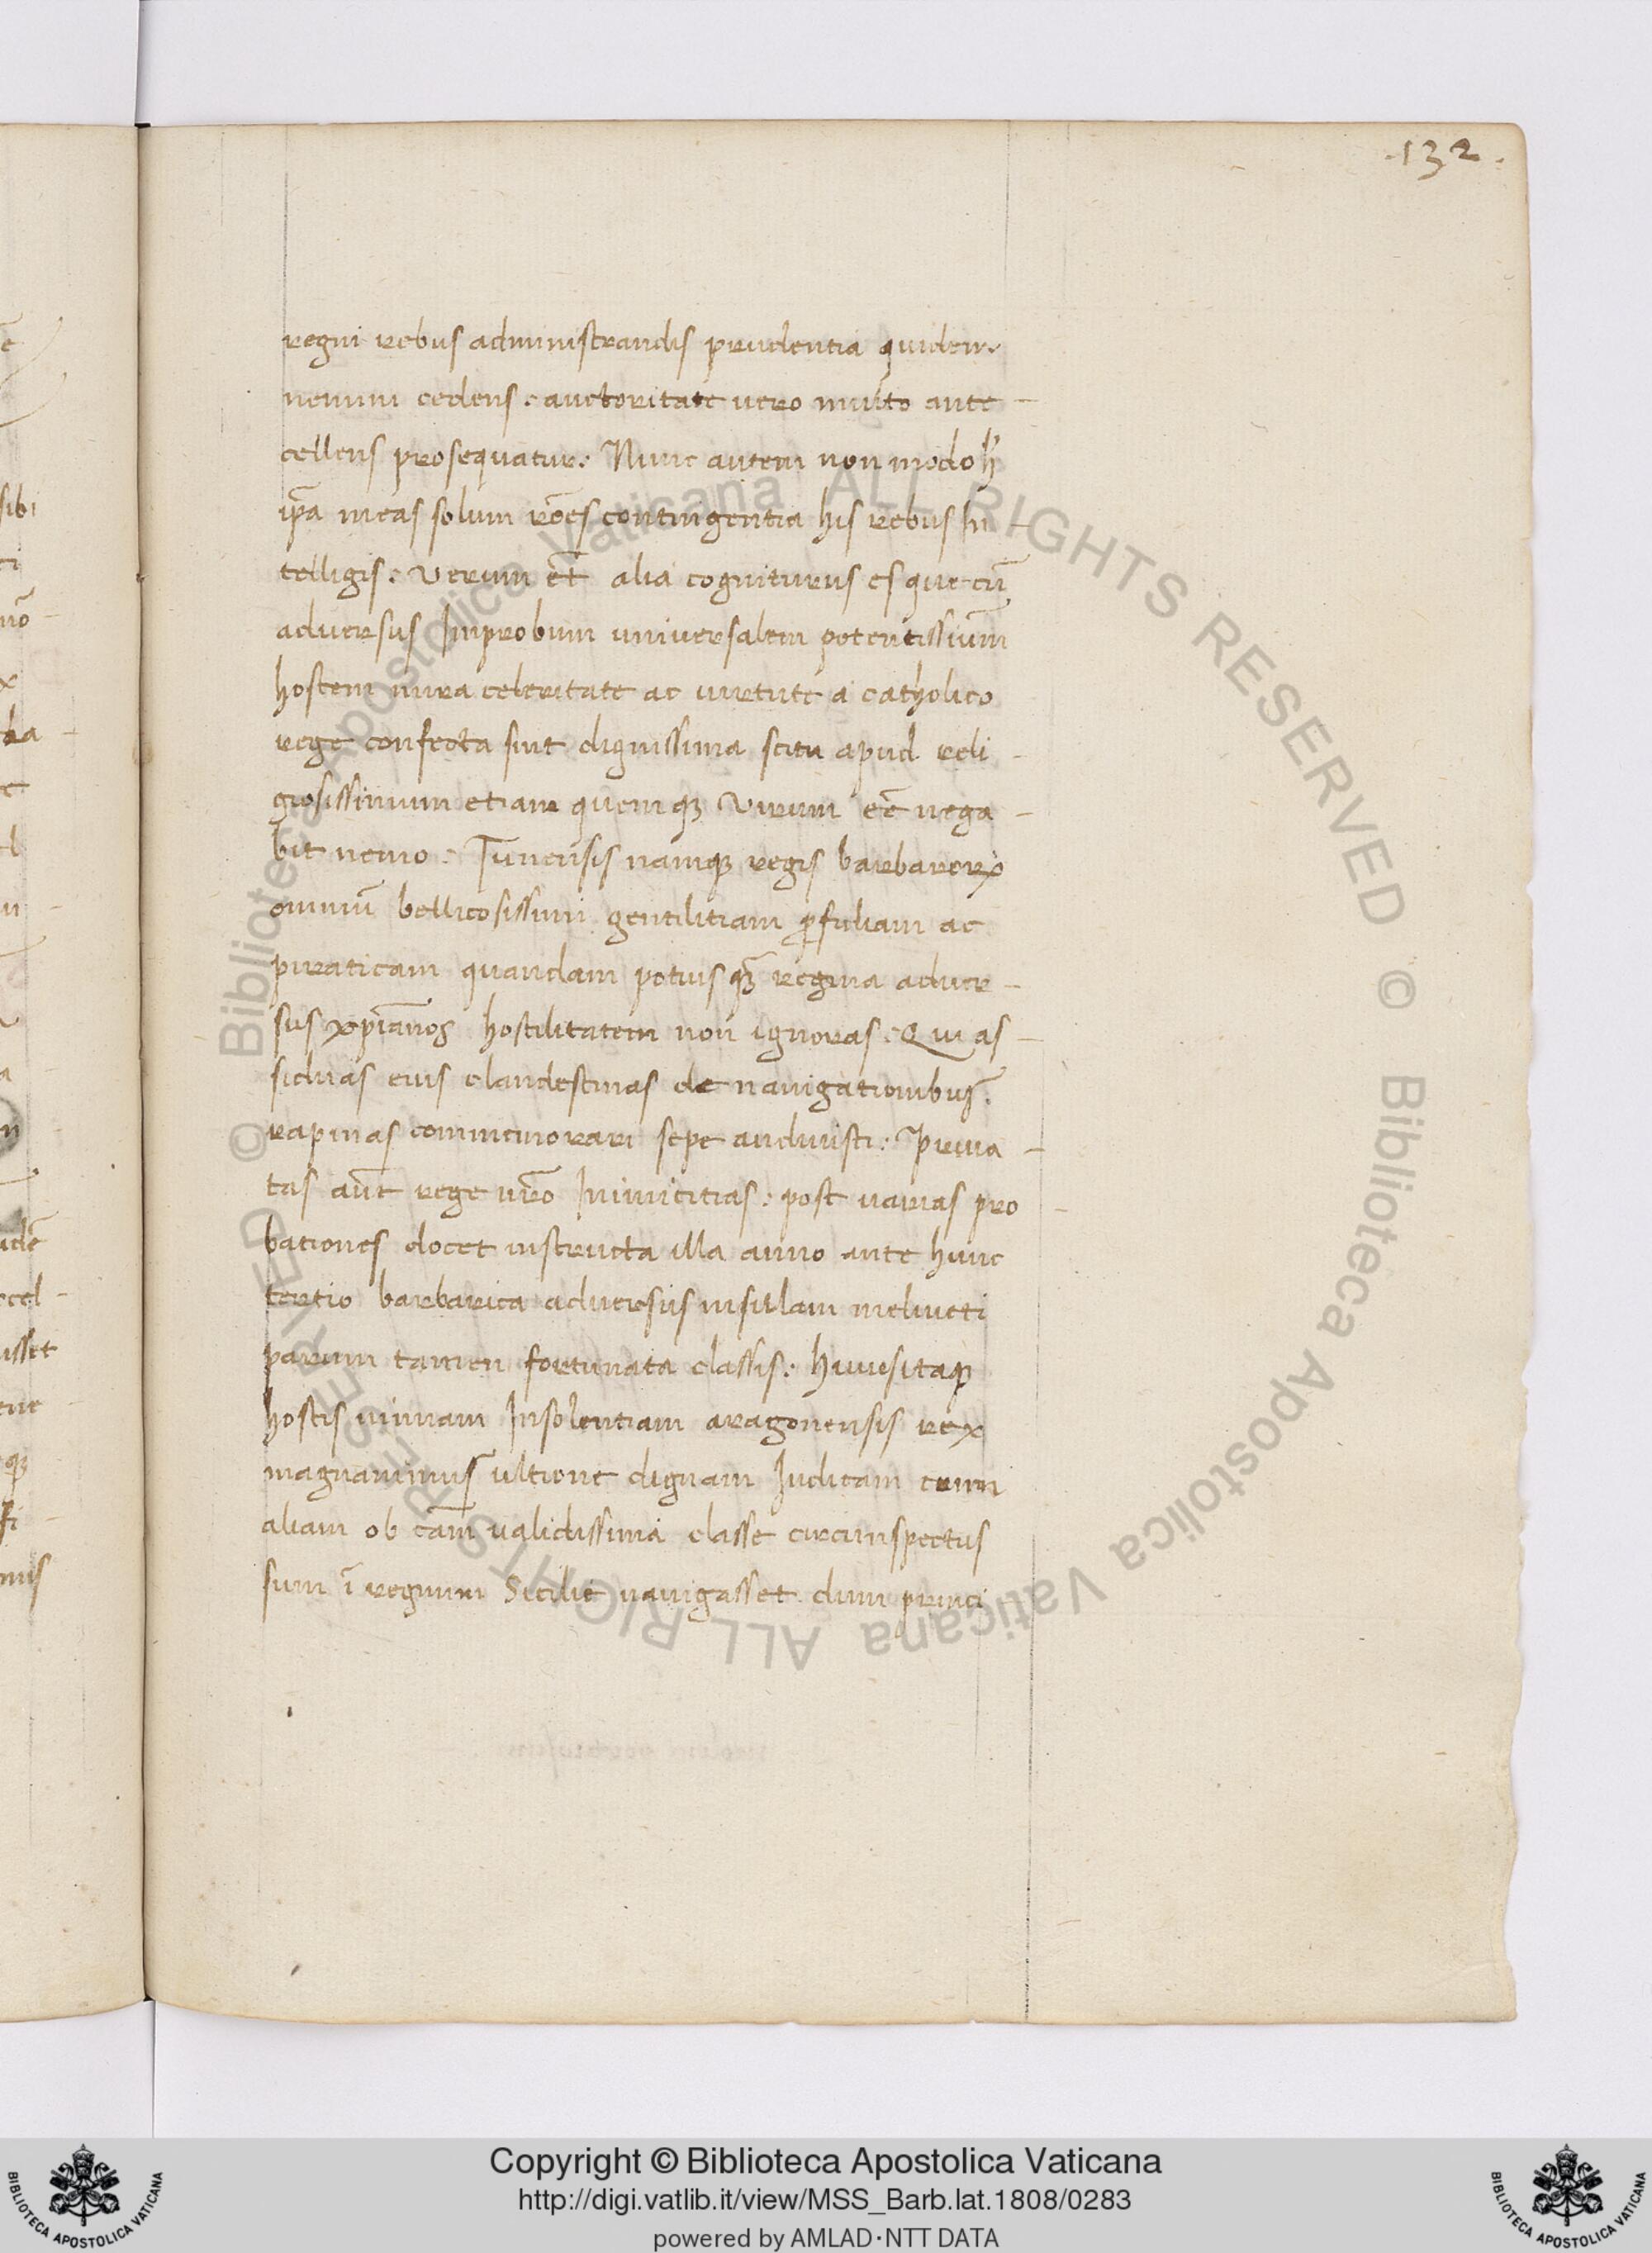 .132.
regni rebus administrandis prudentia quidem.
nemini cedens. auctoritate vero multo ante-
cellens prosequatur. Nunc autem non modo h̾
ip̄a meas solum rōēs contingentia his rebus In-
telligis. Verum ēt alia cogniturus es que cū
adversus Improbum universalem potentissimū
hostem mira celeritate ac virtute a catholico
rege confecta sint dignissima scitu apud reli-
giosissimum etiam quemqꝫ Virum eē nega-
bit nemo. Tunensis namqꝫ regis barbarorꝝ
omniū bellicosissimi gentilitiam ac
piraticam quandam potius qꝫ̄ regina adver-
sus xp̄ianos hostilitatem non ignoras. Qui as-
siduas eius clandestinas de navigationibus.
rapinas commemorari sepe audivisti. Priva-
tas aūt rege vr̄o Inimicitias. post varias pro-
bationes docet instructa illa anno ante hunc
tertio barbarica adversus insulam meliveti
parum tamen fortunata classis. Huius itaqꝫ
hostis nimiam Insolentiam aragonensis rex
magnanimus ultione dignam Iudicam cum
aliam ob cām validissima classe circumspectus
sum ī regnum Sicilie navigasset dum princi-
© Biblioteca Apostolica Vaticana ALL RIGHTS RESERVED © Biblioteca Apostolica Vaticana ALL RIGHTS RESERVED
Copyright © Biblioteca Apostolica Vaticana
http://digi.vatlib.it/view/MSS_Barb.lat.1808/0283
powered by AMLAD·NTT DATA
BIBLIOTECA APOSTOLICA VATICANA
BIBLIOTECA APOSTOLICA VATICANA